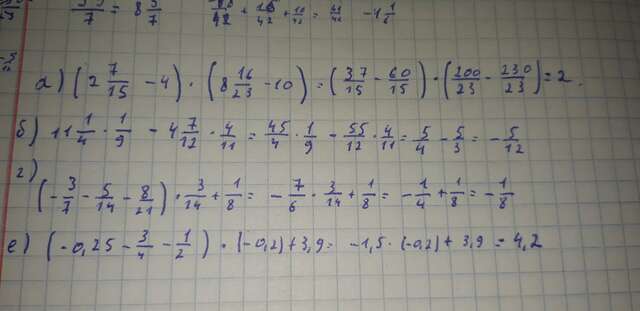 /7 = 8 5/7 + 10/42 = -1 1/6
а) (2 7/15 - 4) · (8 16/23 - 10) = (37/15 - 60/15) · (200/23 - 230/23) = 2.
б) 11 1/4 · 1/9 - 4 7/12 · 4/11 = 45/4 · 1/9 - 55/12 · 4/11 = 5/4 - 5/3 = - 5/12
г)
(- 3/7 - 5/14 - 8/21) · 3/14 + 1/8 = - 7/6 · 3/14 + 1/8 = - 1/4 + 1/8 = - 1/8
е) (-0,25 - 3/4 - 1/2) · (-0,2) + 3,9 = -1,5 · (-0,2) + 3,9 = 4,2